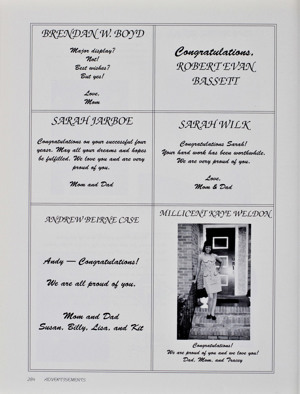 BRENDAN W. BOYD
Major display?
Not!
Best wishes?
But yes!
Love,
Mom
Congratulations,
ROBERT EVAN
BASSETT
SARAH JARBOE
Congratulations on your successful four
years. May all your dreams and hopes
be fulfilled. We love you and are very
proud of you.
Mom and Dad
SARAH WILK
Congratulations Sarah!
Your hard work has been worthwhile.
We are very proud of you.
Love,
Mom & Dad
ANDREW BEIRNE CASE
Andy — Congratulations!
We are all proud of you.
Mom and Dad
Susan, Billy, Lisa, and Kit
MILLICENT KAYE WELDON
Congratulations!
We are proud of you and we love you!
Dad, Mom, and Tracey
ADVERTISEMENTS